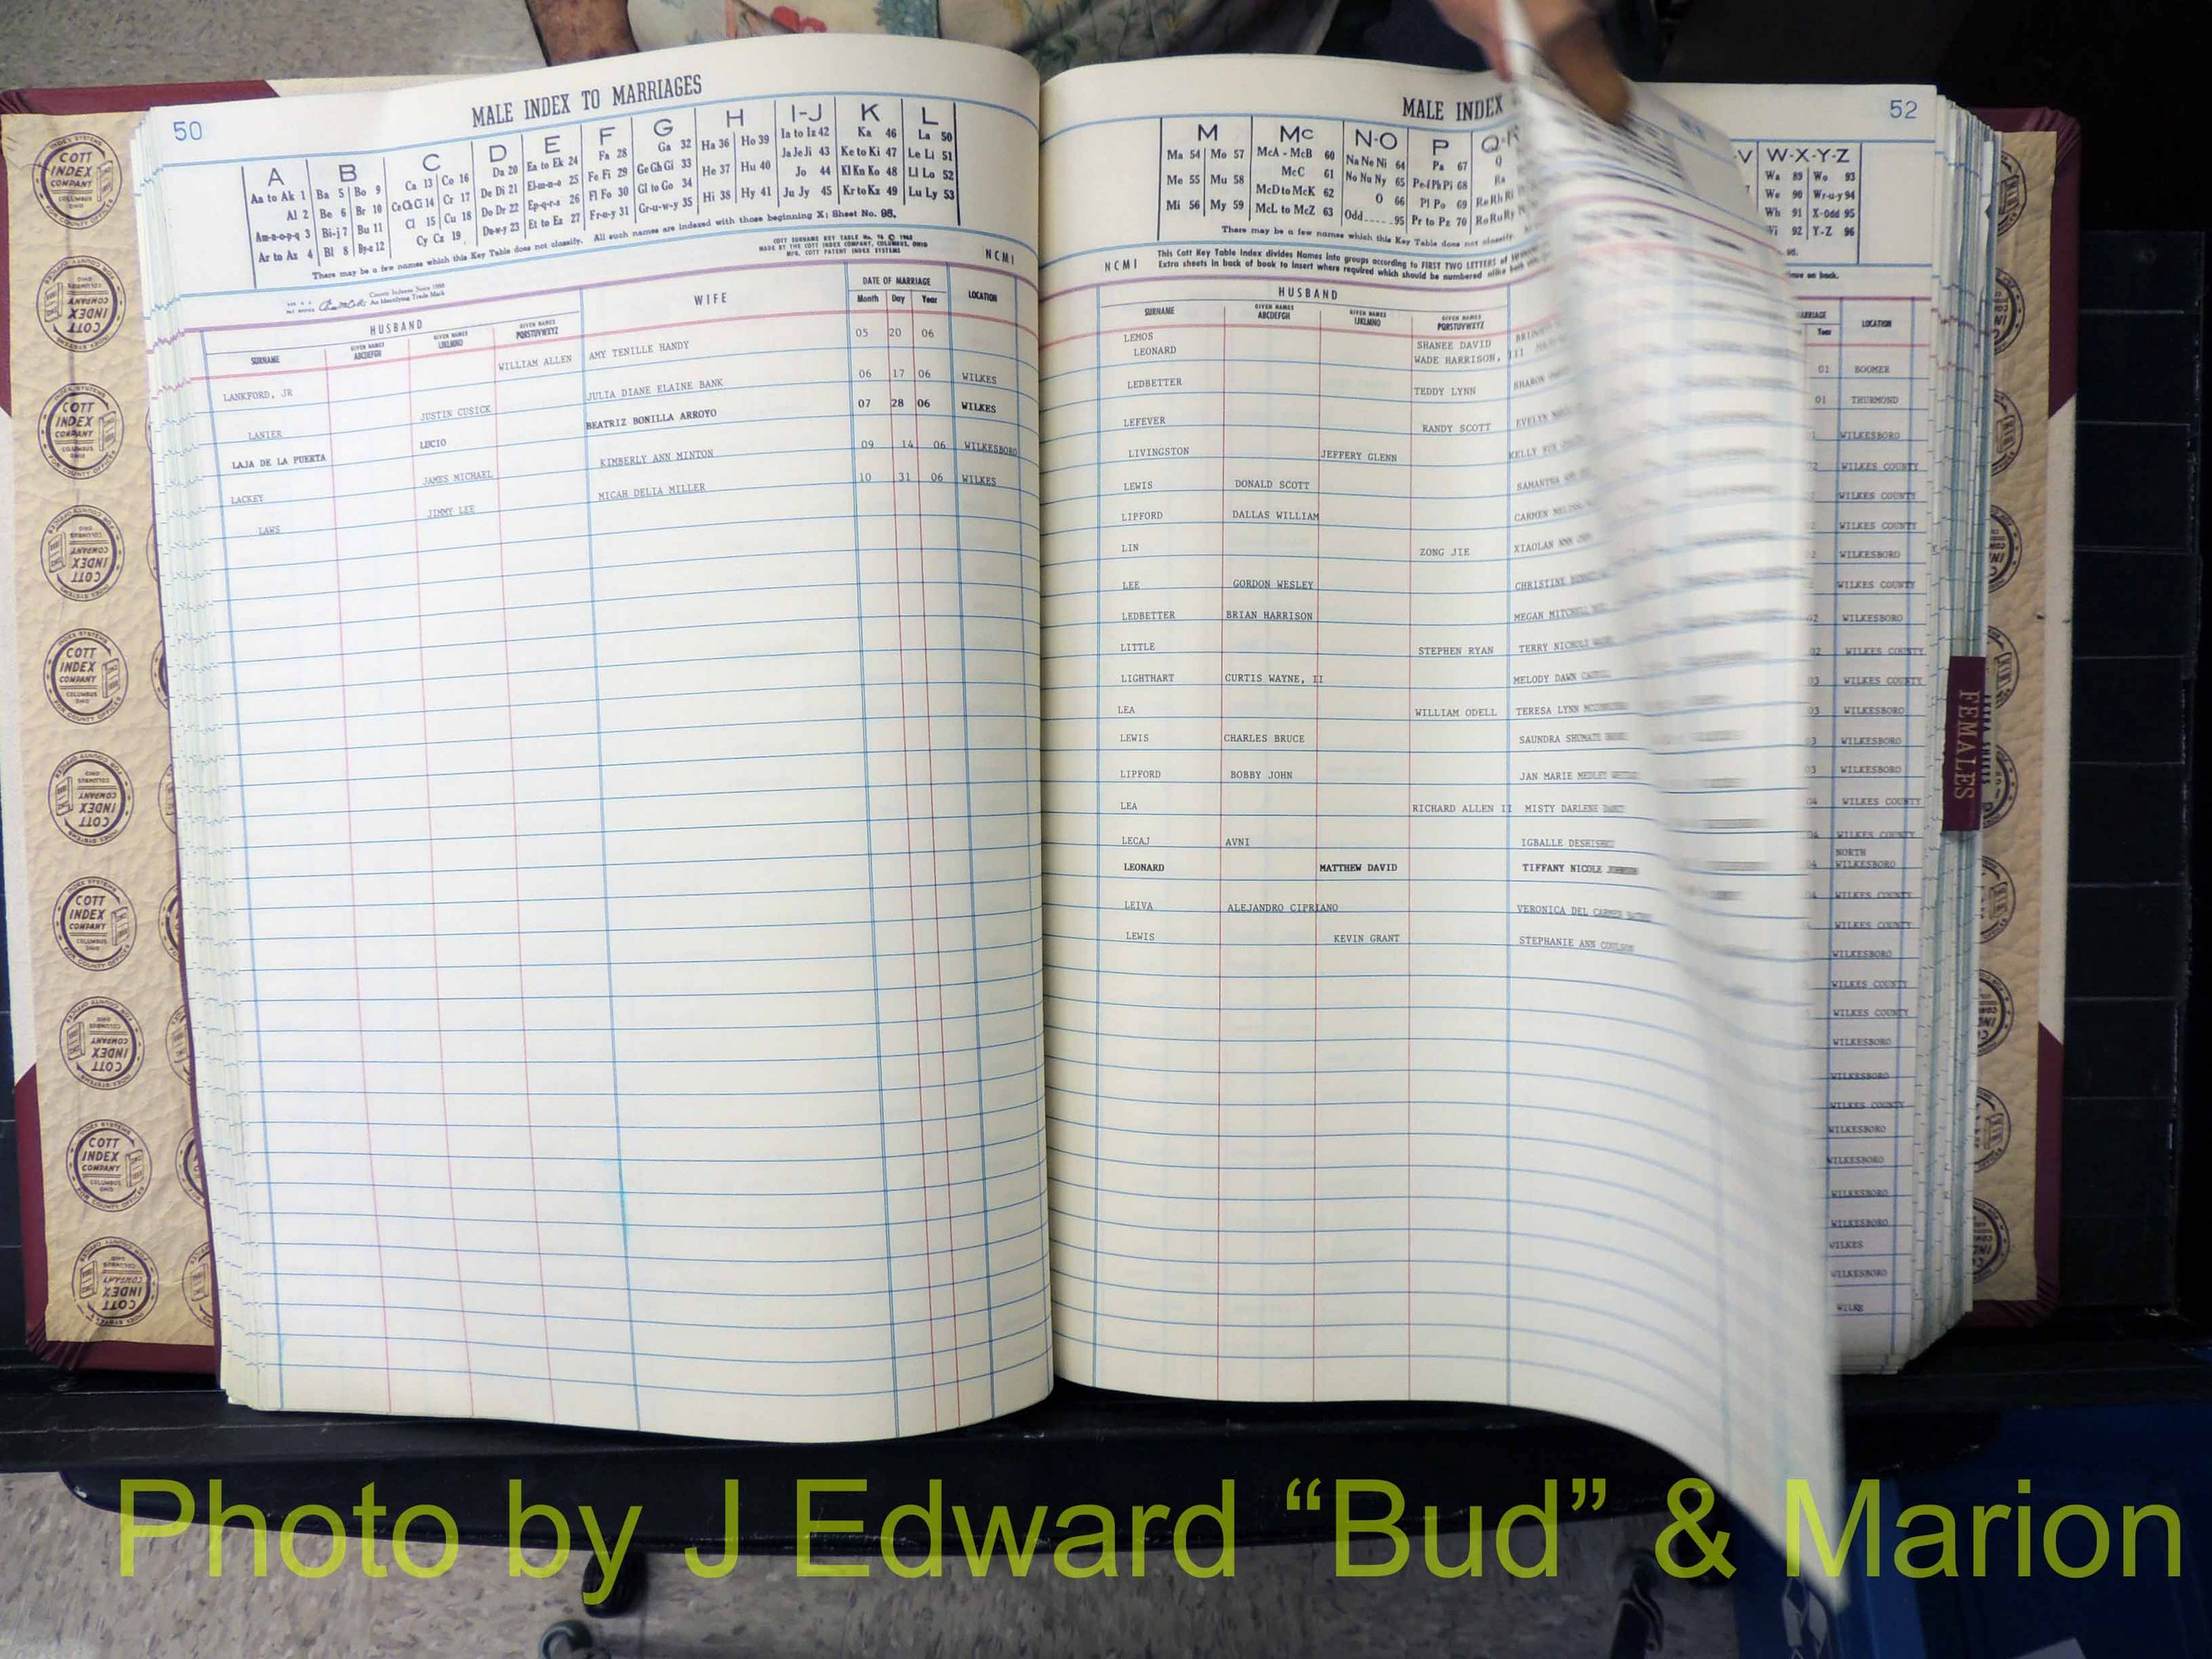 50
MALE INDEX TO MARRIAGES
A B C D E F G H I-J K L
Aa to Ak 1 Ba 5 Bo 9 Ca 13 Co 16 Da 20 Ea to Ek 24 Fa 28 Ga 32 Ha 36 Ho 39 Ia to Iz 42 Ka 46 La 50
Al 2 Be 6 Br 10 Ce Ch Ci 14 Cr 17 De Di 21 El-m-n-o 25 Fe Fi 29 Ge Gh Gi 33 He 37 Hu 40 Ja Je Ji 43 Ke to Ki 47 Le Li 51
Am-n-o-p-q 3 Bi-j 7 Bu 11 Cl 15 Cu 18 Do Dr 22 Ep-q-r-s 26 Fl Fo 30 Gl to Go 34 Hi 38 Hy 41 Jo 44 Kl Kn Ko 48 Ll Lo 52
Ar to Az 4 Bl 8 By-z 12 Cy Cz 19 Du-w-y 23 Et to Ez 27 Fr-u-y 31 Gr-u-w-y 35 Ju Jy 45 Kr to Kz 49 Lu Ly 53
There may be a few names which this Key Table does not classify. All such names are indexed with those beginning X: Sheet No. 95.
COTT SURNAME KEY TABLE
MADE BY THE COTT INDEX COMPANY, COLUMBUS, OHIO
MFG. COTT PATENT INDEX SYSTEMS
NCMI
County Indexes Since 1888
An Identifying Trade Mark
HUSBAND WIFE DATE OF MARRIAGE LOCATION
SURNAME GIVEN NAMES ABCDEFGH GIVEN NAMES IJKLMNO GIVEN NAMES PQRSTUVWXYZ Month Day Year
LANKFORD, JR WILLIAM ALLEN AMY TENILLE HANDY 05 20 06
LANIER JUSTIN CUSICK JULIA DIANE ELAINE BANK 06 17 06 WILKES
LAJA DE LA PUERTA LUCIO BEATRIZ BONILLA ARROYO 07 28 06 WILKES
LACKEY JAMES MICHAEL KIMBERLY ANN MINTON 09 14 06 WILKESBORO
LAWS JIMMY LEE MICAH DELIA MILLER 10 31 06 WILKES
MALE INDEX
52
M Mc N-O P Q-R
Ma 54 Mo 57 McA - McB 60 Na Ne Ni 64 Pa 67 Q
Me 55 Mu 58 McC 61 No Nu Ny 65 Pe-f Ph Pi 68 Ra
Mi 56 My 59 McD to McK 62 O 66 Pl Po 69 Re Rh Ri
McL to McZ 63 Odd 95 Pr to Pz 70 Ro Ru Ry
There may be a few names which this Key Table does not classify.
NCMI
This Cott Key Table Index divides Names into groups according to FIRST TWO LETTERS of
Extra sheets in back of book to insert where required which should be numbered
V W-X-Y-Z
Wa 89 Wo 93
We 90 Wr-u-y 94
Wh 91 X-Odd 95
Wi 92 Y-Z 96
HUSBAND
SURNAME GIVEN NAMES ABCDEFGH GIVEN NAMES IJKLMNO GIVEN NAMES PQRSTUVWXYZ
LEMOS SHANEE DAVID
LEONARD WADE HARRISON, III
LEDBETTER TEDDY LYNN SHARON
LEFEVER RANDY SCOTT EVELYN
LIVINGSTON JEFFERY GLENN KELLY
LEWIS DONALD SCOTT SAMANTHA
LIPFORD DALLAS WILLIAM CARMEN
LIN ZONG JIE XIAOLAN
LEE GORDON WESLEY CHRISTINE
LEDBETTER BRIAN HARRISON MEGAN MITCHELL
LITTLE STEPHEN RYAN TERRY NICHOLS
LIGHTHART CURTIS WAYNE, II MELODY DAWN
LEA WILLIAM ODELL TERESA LYNN
LEWIS CHARLES BRUCE SAUNDRA SHUMATE
LIPFORD BOBBY JOHN JAN MARIE MEDLEY
LEA RICHARD ALLEN II MISTY DARLENE
LECAJ AVNI IGBALLE
LEONARD MATTHEW DAVID TIFFANY NICOLE
LEIVA ALEJANDRO CIPRIANO VERONICA DEL CARMEN
LEWIS KEVIN GRANT STEPHANIE ANN
Year LOCATION
01 BOOMER
01 THURMOND
WILKESBORO
WILKES COUNTY
WILKES COUNTY
WILKES COUNTY
WILKESBORO
WILKES COUNTY
WILKESBORO
WILKES COUNTY
WILKES COUNTY
WILKESBORO
WILKESBORO
WILKESBORO
WILKES COUNTY
WILKES COUNTY
NORTH
WILKESBORO
WILKES COUNTY
WILKES COUNTY
WILKESBORO
WILKES COUNTY
WILKES COUNTY
WILKESBORO
WILKESBORO
WILKES COUNTY
WILKESBORO
WILKESBORO
WILKESBORO
WILKESBORO
WILKES
WILKESBORO
FEMALES
COTT INDEX COMPANY
Photo by J Edward “Bud” & Marion